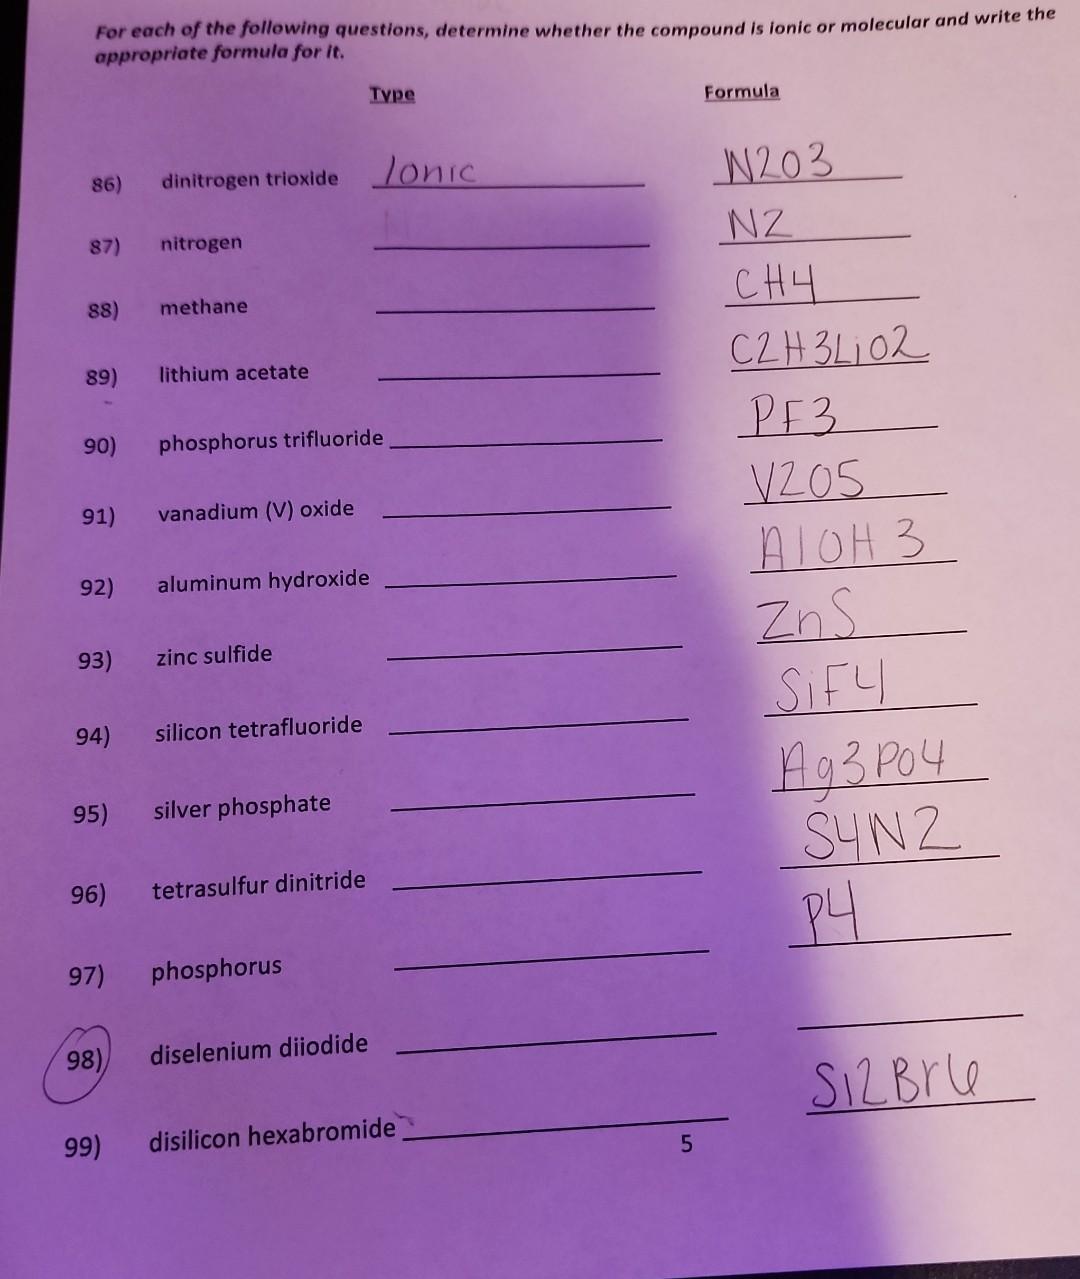 For each of the following questions, determine whether the compound is ionic or molecular and write the
appropriate formula for it.
Type Formula
86) dinitrogen trioxide Ionic N2O3
87) nitrogen N2
88) methane CH4
89) lithium acetate C2H3LiO2
90) phosphorus trifluoride PF3
91) vanadium (V) oxide V2O5
92) aluminum hydroxide AlOH3
93) zinc sulfide ZnS
94) silicon tetrafluoride SiF4
95) silver phosphate Ag3PO4
96) tetrasulfur dinitride S4N2
97) phosphorus P4
98) diselenium diiodide
99) disilicon hexabromide Si2Br6
5